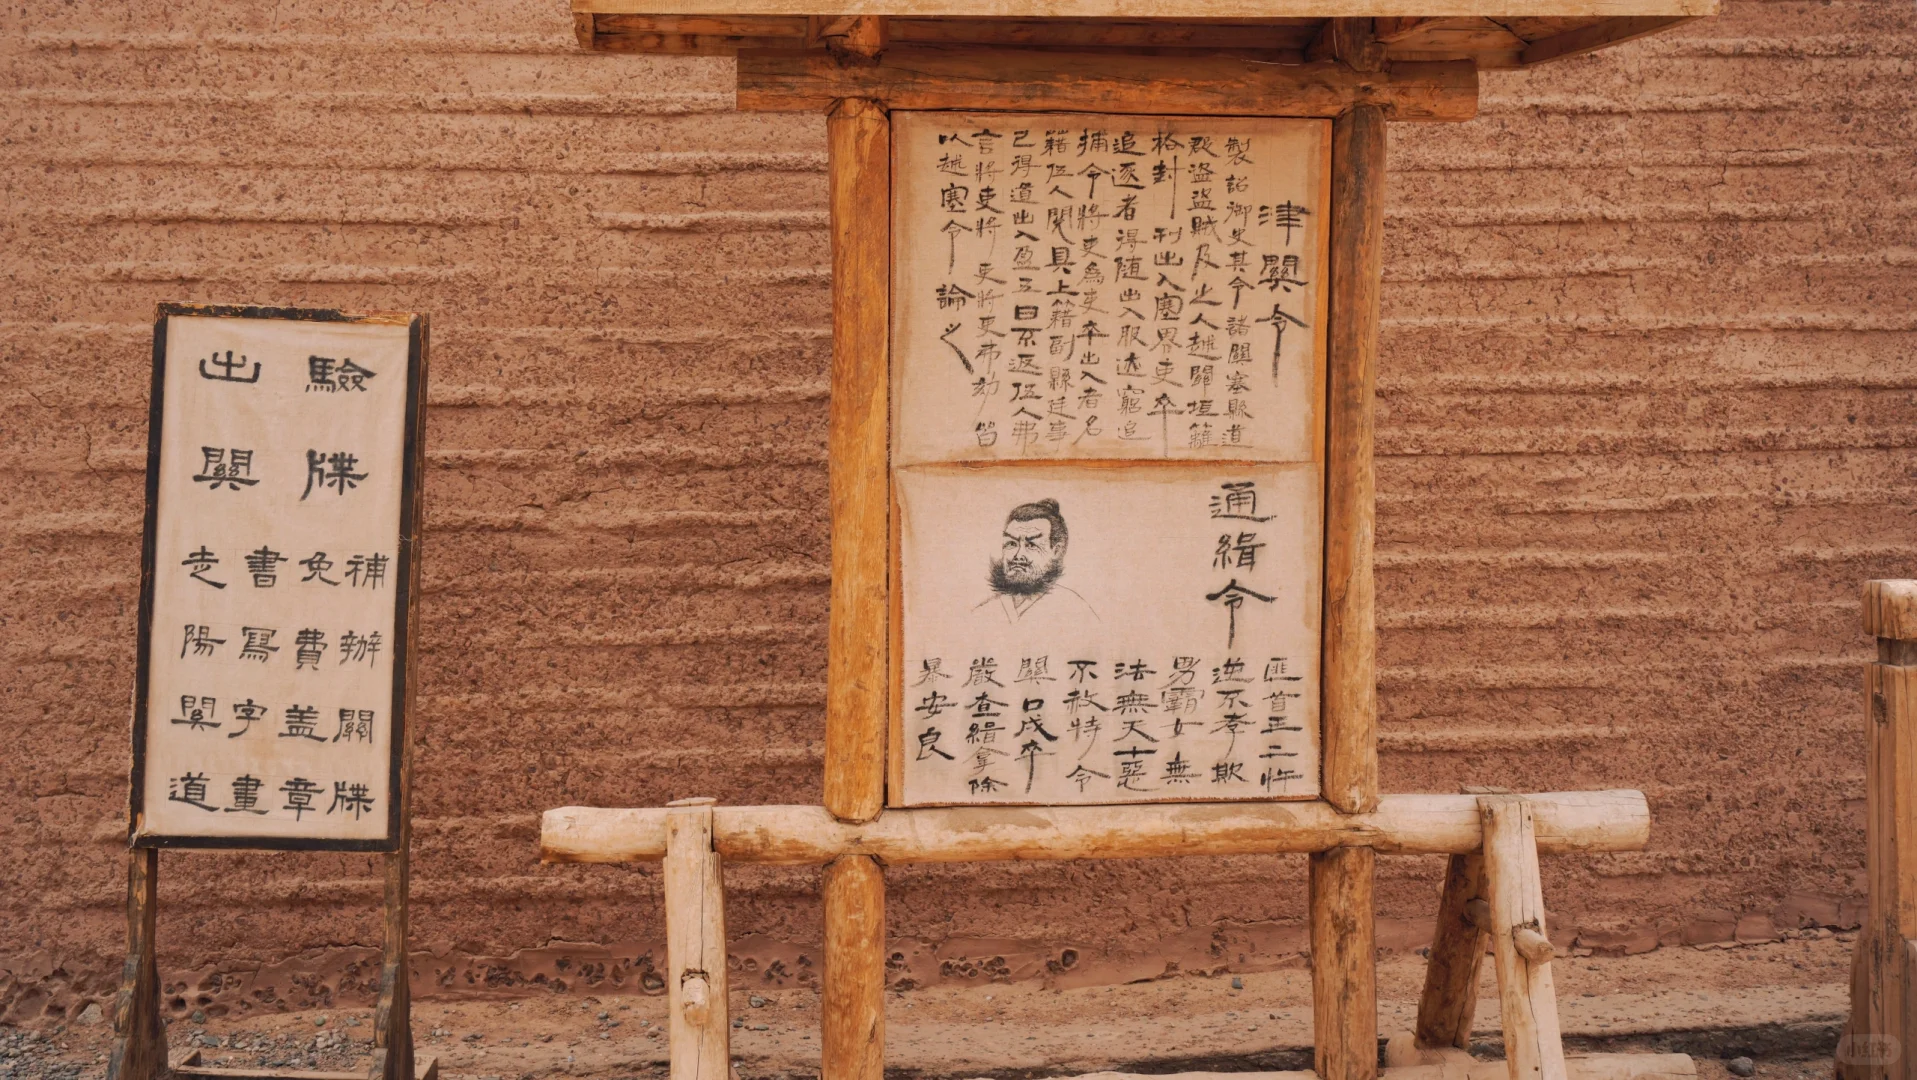 津關令
製詔御史其令諸關塞縣道
羣盗盜賊及亡人越關垣籬
格封刊出入塞界吏卒
追逐者得随出入服迹窮追
捕令將吏為吏卒出入者名
籍伍人閱具上籍副縣廷事
已得道出入盈五日不返伍人弗
言將吏將吏將吏弗劾皆
以越塞令論之
通緝令
匪首王二忤
逆不孝欺
男霸女無
法無天十惡
不赦特令
關口戍卒
嚴查緝拿除
暴安良
驗牒
出關
補辦關牒
免費盖章
書寫字畫
走陽關道
小红书